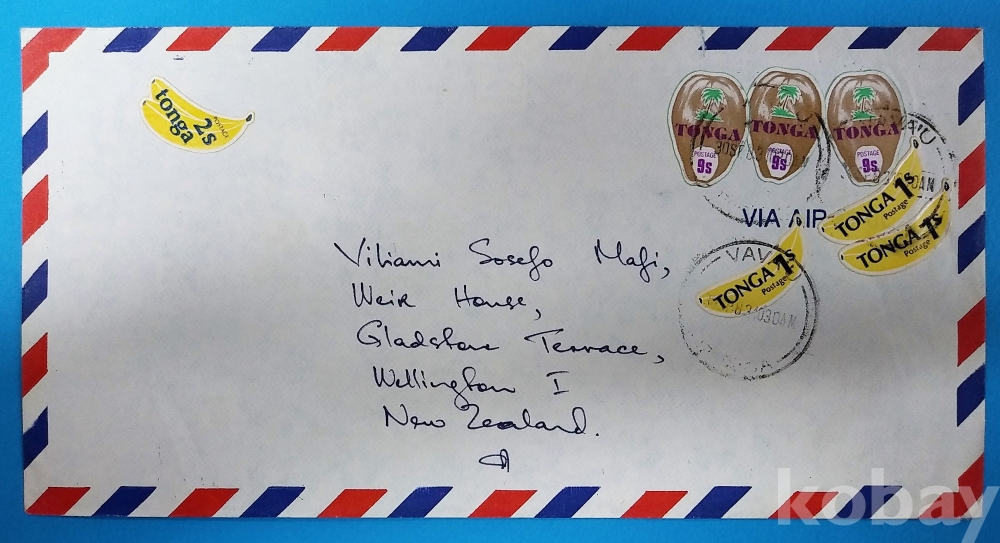 tonga
2s
POSTAGE
TONGA
POSTAGE
9s
TONGA
POSTAGE
9s
TONGA
POSTAGE
9s
VIA AIR
TONGA 1s
Postage
TONGA 1s
Postage
TONGA 1s
Postage
VAV
Viliami Sosefo Mafi,
Weir House,
Gladstone Terrace,
Wellington I
New Zealand.
kobay